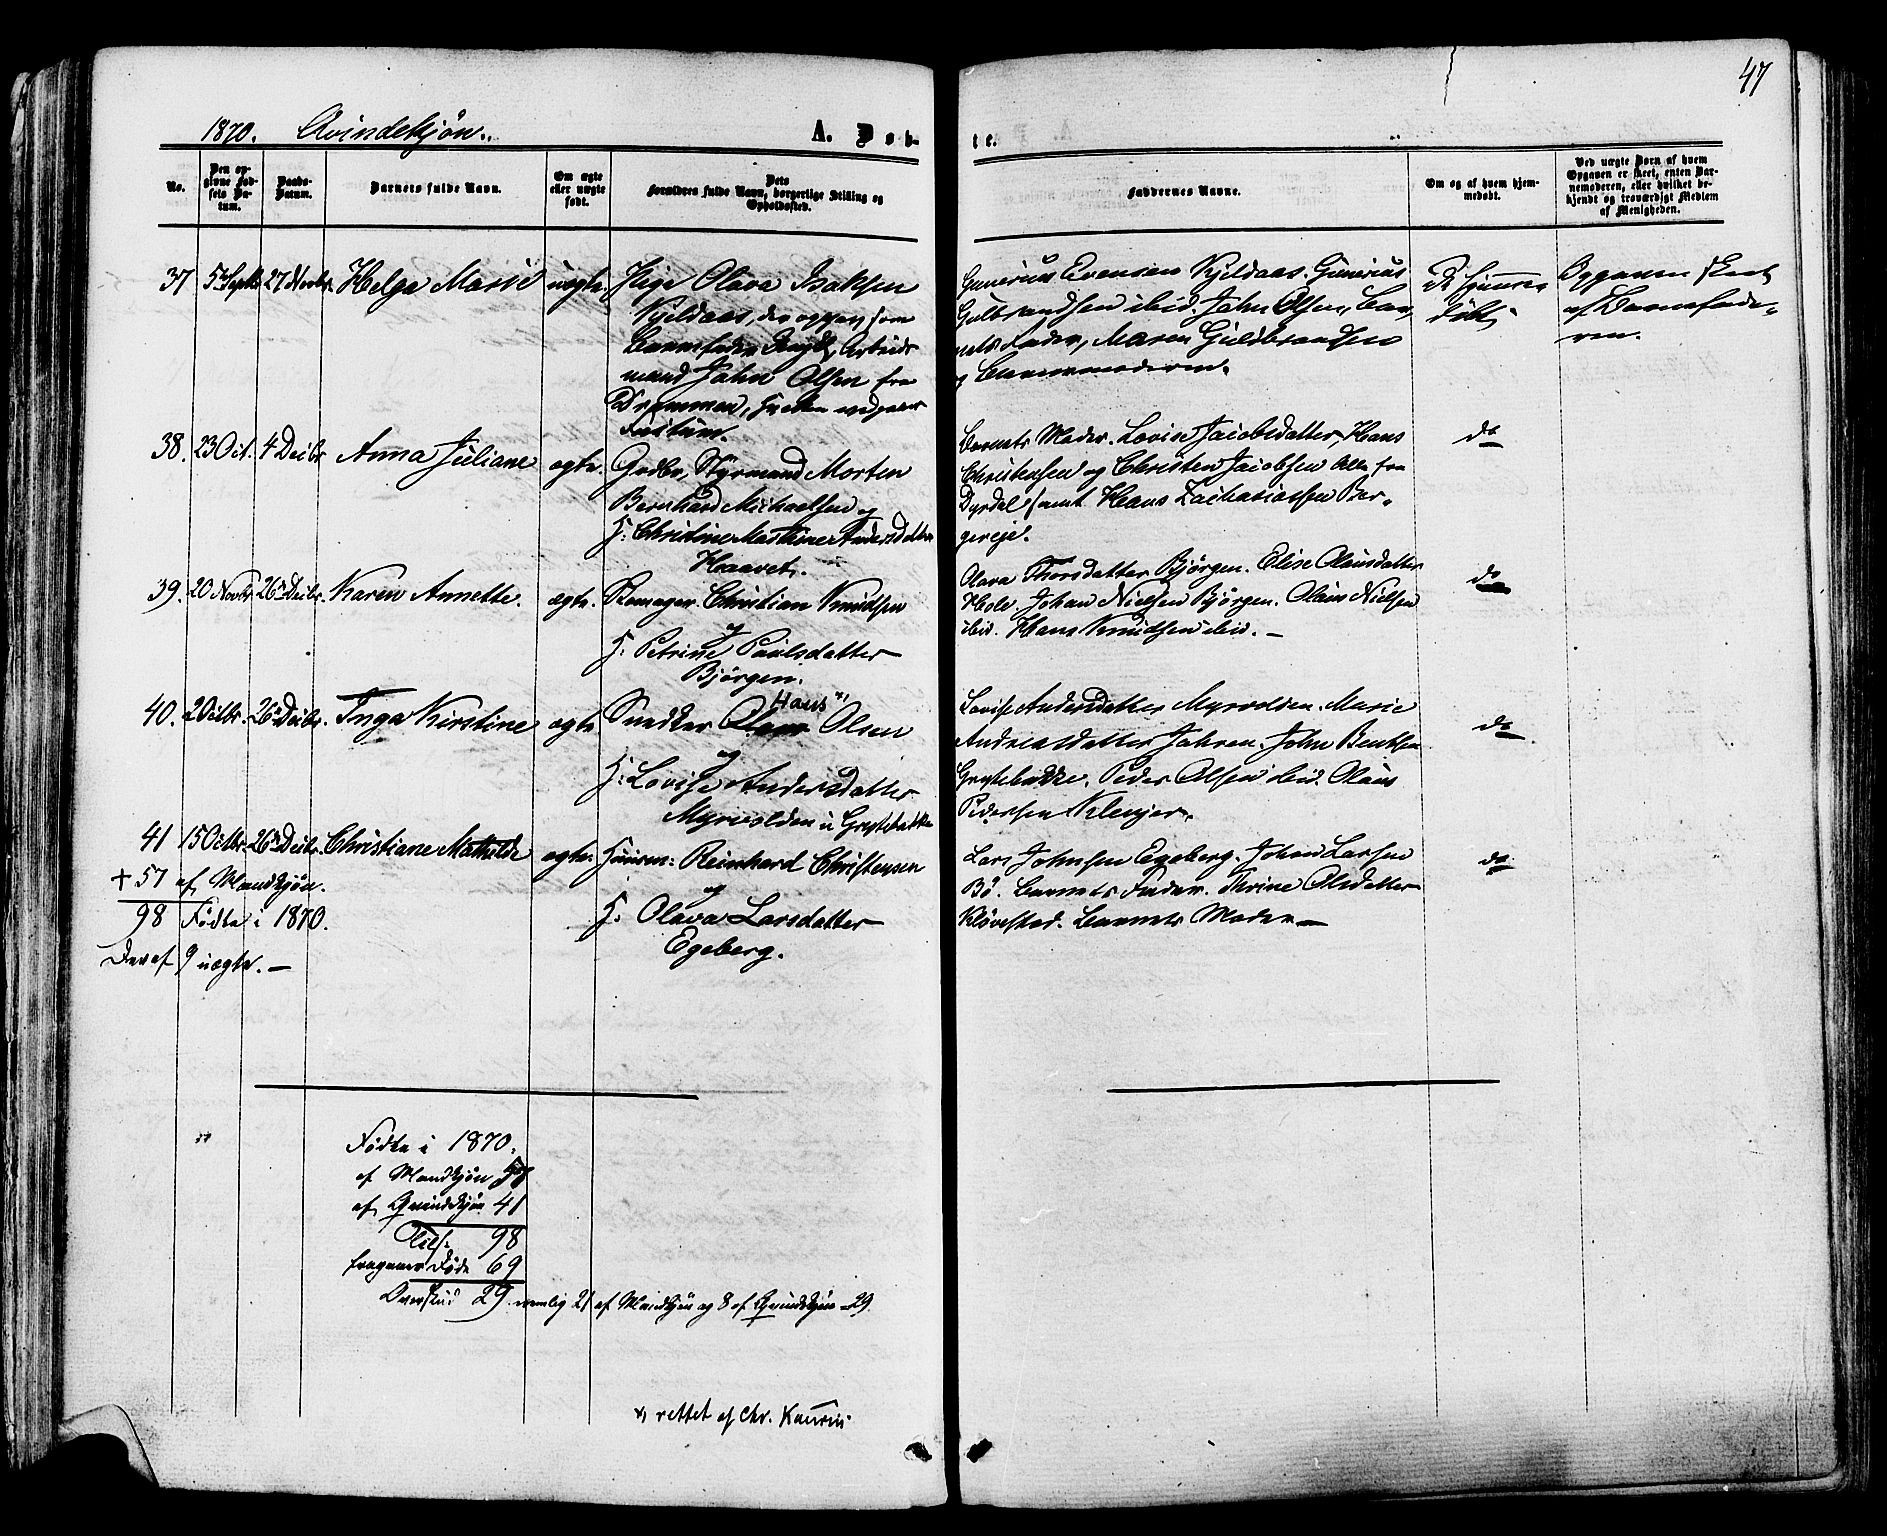 47
1870. Qvindekjøn. A. Døb-
te.
No.
Den opgivne Fødsels Datum.
Daabs-Datum.
Barnets fulde Navn.
Om ægte eller uægte født.
Dets Forældres fulde Navn, borgerlige Stilling og Opholdssted.
Faddernes Navne.
Om og af hvem hjemmedøbt.
Ved uægte Børn af hvem Opgaven er skeet, enten Barnemoderen, eller hvilket bekjendt og troværdigt Medlem af Menigheden.
37 5te Septbr 27 Novbr. Helga Marie uægte. Pige Olava Isaksen
Kjeldaas, der opgav som
Barnefader Ungk. Arbeids
mand John Olsen fra
Drammen,
Gunerius Evensen Kjeldaas. Gunerius
Gulbrandsen ibid. John Olsen, Bar-
nets Fader, Maren Guldbrandsen
og Barnemoderen.
Ei hjemme-
døbt.
Opgaven skeet
af Barnefade-
ren.
38. 23 Oct. 4 Decbr Anna Juliane ægte. Gadbr, Styrmand Morten
Bernhard Michaelsen og
H: Christine Mathine Andersdatter
Haavet.
Barnets Moder. Lovise Jacobsdatter, Hans
Christensen og Christen Jacobsen Alle fra
Dyrdal samt Hans Zachariassen Ber-
gereje.
do
39. 20 Novbr 26de Decbr. Karen Annette. ægte. Skomager Christian Knudsen
og
H: Petrine Paulsdatter
Bjørgen.
Olava Thorsdatter Bjørgen. Elise Olausdatter
Hole. Johan Nielsen Bjørgen. Olaus Nielsen
ibid. Hans Knudsen ibid. –
do
40. 2 Octbr. 26de Decbr. Inga Kirstine ægte Snedker Olaus Hans x) Olsen
og
H: Lovise Andersdatter
Myrvolden u Grystebakke
Lovise Andersdatter Myrvolden. Marie
Andreasdatter Jahren. John Bentsen
Grystebakke. Peder Olsen ibid. Olaus
Pedersen Klevjer.
do
41 15 Octbr. 26de Decbr. Christiane Mathilde ægte. Huusm: Reinhard Christensen
og
H: Olava Larsdatter
Egeberg.
Lars Johnsen Egeberg. Johan Larsen
Bø. Barnets Fader. Thrine Olsdatter
Kløvestad. Barnets Moder –
do
+ 57 af Mandkjøn.
98 Fødte i 1870.
Deraf 9 uægte. –
Fødte i 1870.
af Mandkjøn 57
af Qvindekjøn 41
Tils. 98
fragaaer Døde 69
Overskud 29. nemlig 21 af Mandkjøn og 8 af Qvindekjøn = 29.
x) rettet af Chr. Kaurin